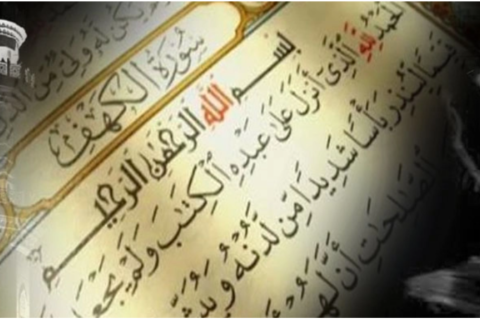 يَكُن لَّهُ وَلِيٌّ مِّنَ
سُورَةُ الْكَهْفِ
بِسْمِ اللَّهِ الرَّحْمَٰنِ الرَّحِيمِ
الْحَمْدُ لِلَّهِ الَّذِي أَنزَلَ عَلَىٰ عَبْدِهِ الْكِتَٰبَ وَلَمْ يَجْعَل
لِّيُنذِرَ بَأْسًا شَدِيدًا مِّن لَّدُنْهُ وَيُبَشِّ
الصَّٰلِحَٰتِ أَنَّ لَهُمْ